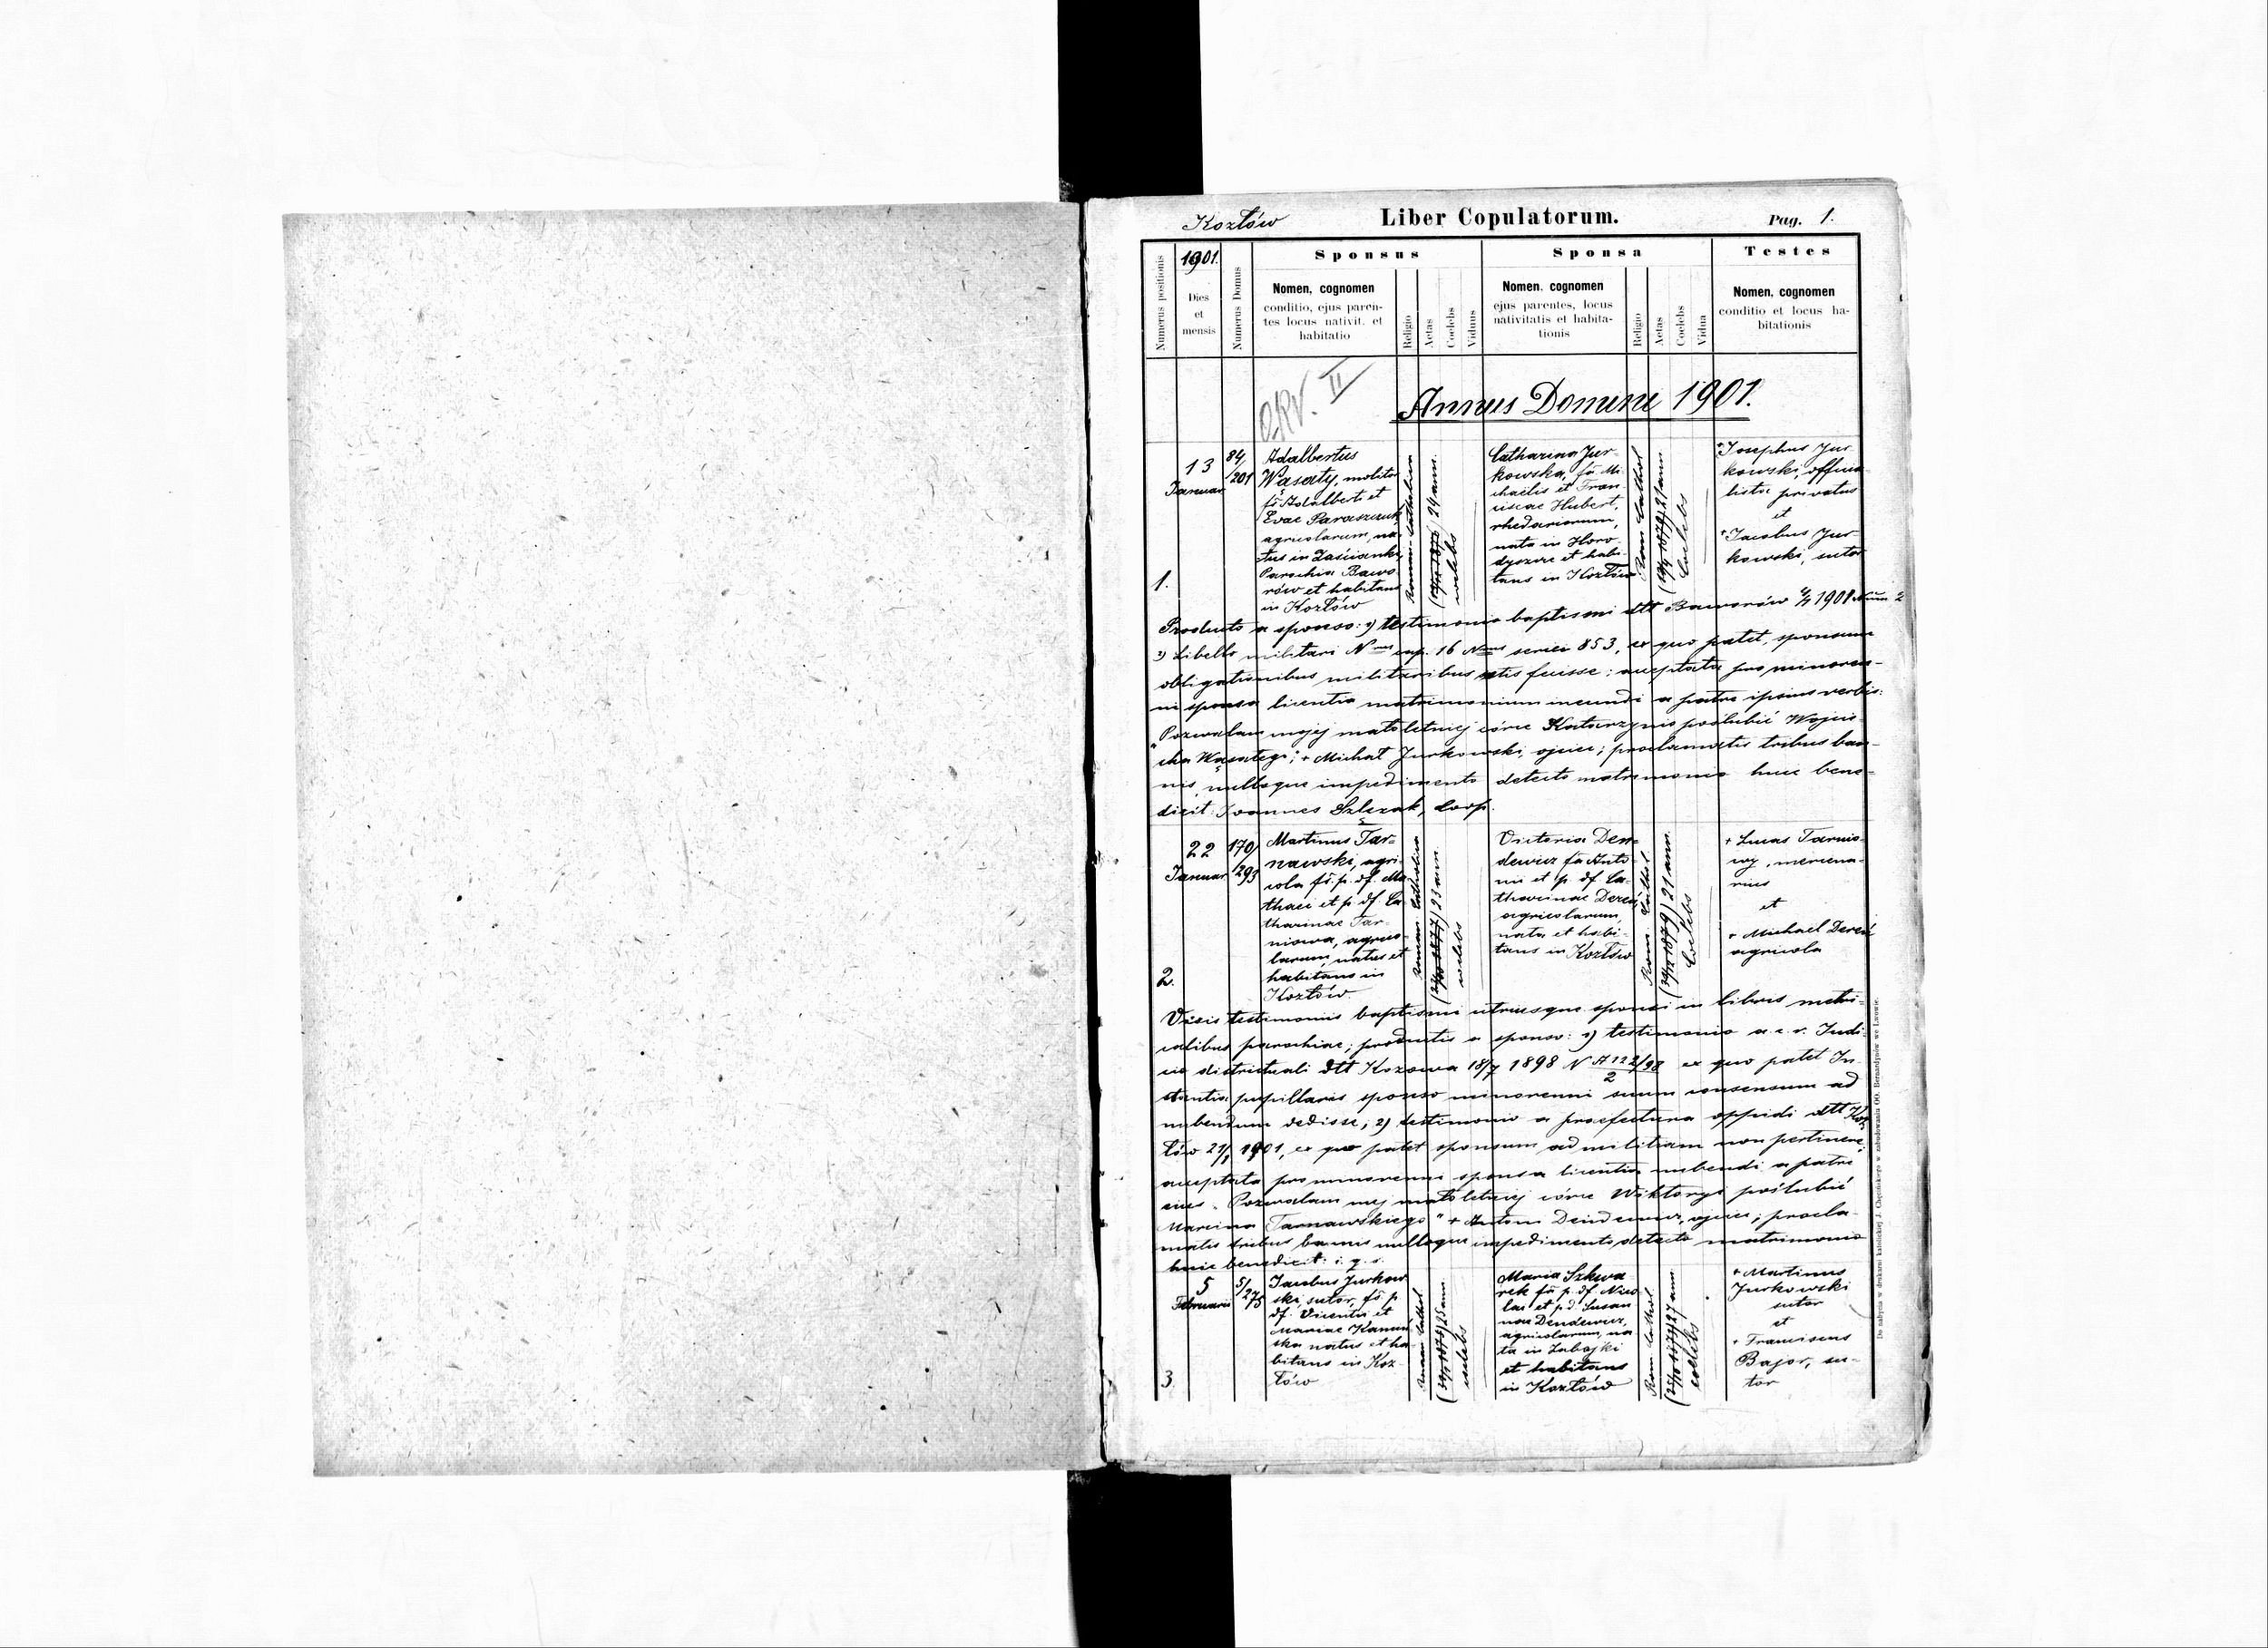 Kozłów
Liber Copulatorum.
Pag. 1.
Numerus positionis
1901.
Dies
et
mensis
Numerus Domus
Sponsus
Nomen, cognomen
conditio, ejus paren-
tes locus nativit. et
habitatio
Religio
Aetas
Coelebs
Viduus
Sponsa
Nomen, cognomen
ejus parentes, locus
nativitatis et habita-
tionis
Religio
Aetas
Coelebs
Vidua
Testes
Nomen, cognomen
conditio et locus ha-
bitationis
II
Annus Domini 1901.
1.
13
Januar
84/201
Adalbertus
Wasaty, molitor
fs Adalberti et
Evae Paraszczuk
agricolarum, na-
tus in Zaścianki
Parochia Bawo-
rów et habitans
in Kozłów
Romano Catholica
24 ann.
coelebs
Catharina Jur-
kowska, fa Mi-
chaelis et Fran-
ciscae Hubert,
rhedariorum,
nata in Horo-
dyszcze et habi-
tans in Kozłów
Rom Cathol
21 ann
Coelebs
+Josephus Jur-
kowski, officia-
lista privatus
et
+Jacobus Jur-
kowski, sutor
Producto a sponso: 1) testimonio baptismi dtt Baworów 1901 Num 2
2) Libello militari N cap. 16 seriei 853, ex quo patet, sponsum
obligationibus militaribus fuisse; acceptata pro minoren-
ni sponsa licentia matrimonium ineundi a patre ipsius verbis:
"Pozwalam mojej małoletniej córce Katarzynie poślubić Wojcie-
cha Wasatego"; + Michał Jurkowski, ojciec; proclamatis tribus ban-
nis, nulloque impedimento detecto matrimonio huic bene-
dicit: Joannes Szlezak, Coop.
2.
22
Januar
170/293
Martinus Tar-
nawski, agri-
cola fs. p. df. Ma-
thaei et p. df. Ca-
tharinae Tar-
niowa, agrico-
larum, natus et
habitans in
Kozłów.
Roman Catholica
23 ann.
coelebs
Victoria Den-
dewicz fa Anto-
nii et p. df. Ca-
tharinae Dereń
agricolarum,
nata et habi-
tans in Kozłów
Rom. Cathol
21 ann.
Coelebs
+ Lucas Tarnio-
wy, mercena-
rius
et
+ Michael Dereń
agricola
Visis testimoniis baptismi utriusque sponsi in libris metri-
calibus parochiae; productis a sponso: 1) testimonio a c. r. Judi-
cio districtuali dtt Kozowa 18/7 1898 N A 122/98 / 2 ex quo patet In-
stantia pupillaris sponso minorenni suum consensum ad
nubendum dedisse; 2) testimonio a praefectura oppidi dtt Koz-
łów 21/1 1901, ex quo patet sponsum ad militiam non pertinere;
acceptata pro minorenni sponsa licentia nubendi a patre
eius "Pozwalam mej małoletniej córce Wiktoryi poślubić
Marcina Tarnawskiego" + Antoni Dendewicz, ojciec; procla-
matis tribus bannis nulloque impedimento detecto matrimonio
huic benedicit: i. q. s.
3.
5
Februarii
5/275
Jacobus Jurkow-
ski, sutor, fs. p
df. Vicentii et
Mariae Kamin-
ska natus et ha-
bitans in Koz-
łów
Roman Cathol
25 ann
coelebs
Maria Szkwa-
rek fa p. df Nico-
lai et p d. Susan
nae Dendewicz,
agricolarum, na-
ta in Zabojki
et habitans
in Kozłów
Rom Cathol.
27 ann
coelebs
+ Martinus
Jurkowski
sutor
et
+ Franciscus
Bajor, su-
tor
Do nabycia w drukarni katolickiej J. Chęcińskiego w zabudowaniu OO. Bernardynów we Lwowie.